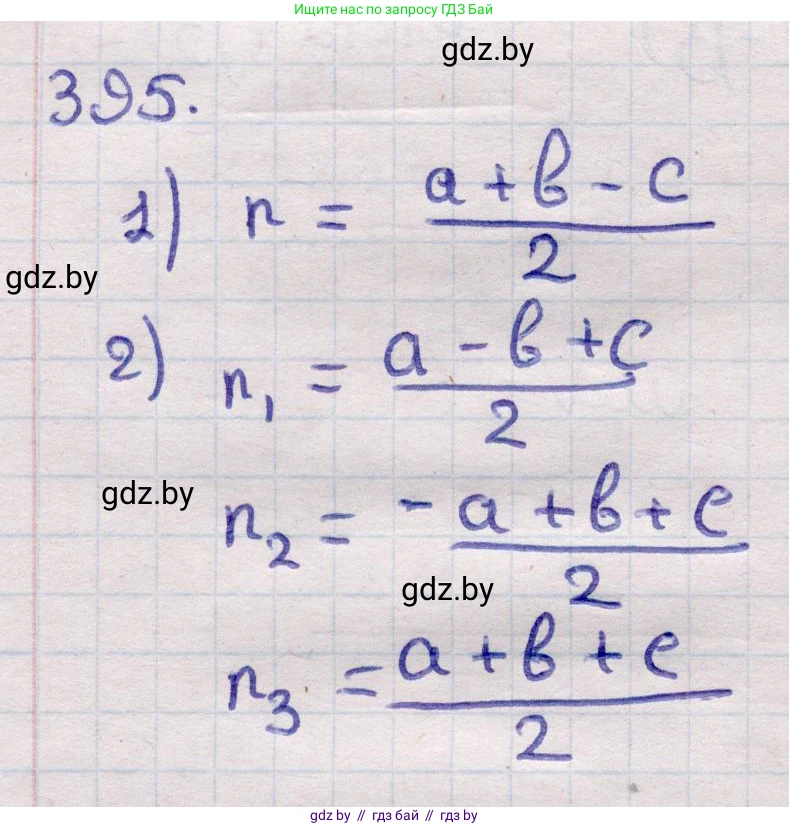 Ищите нас по запросу ГДЗ Бай
gdz.by
395.
1) n = (a + b - c) / 2
gdz.by
2) n₁ = (a - b + c) / 2
gdz.by
n₂ = (-a + b + c) / 2
gdz.by
n₃ = (a + b + c) / 2
gdz.by // гдз бай // гдз by